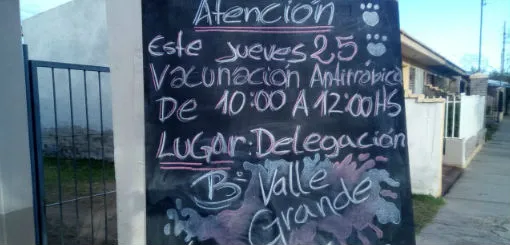 Atención
Este jueves 25
Vacunación Antirrábica
De 10:00 A 12:00HS
LUGAR: Delegación
B: Valle
Grande